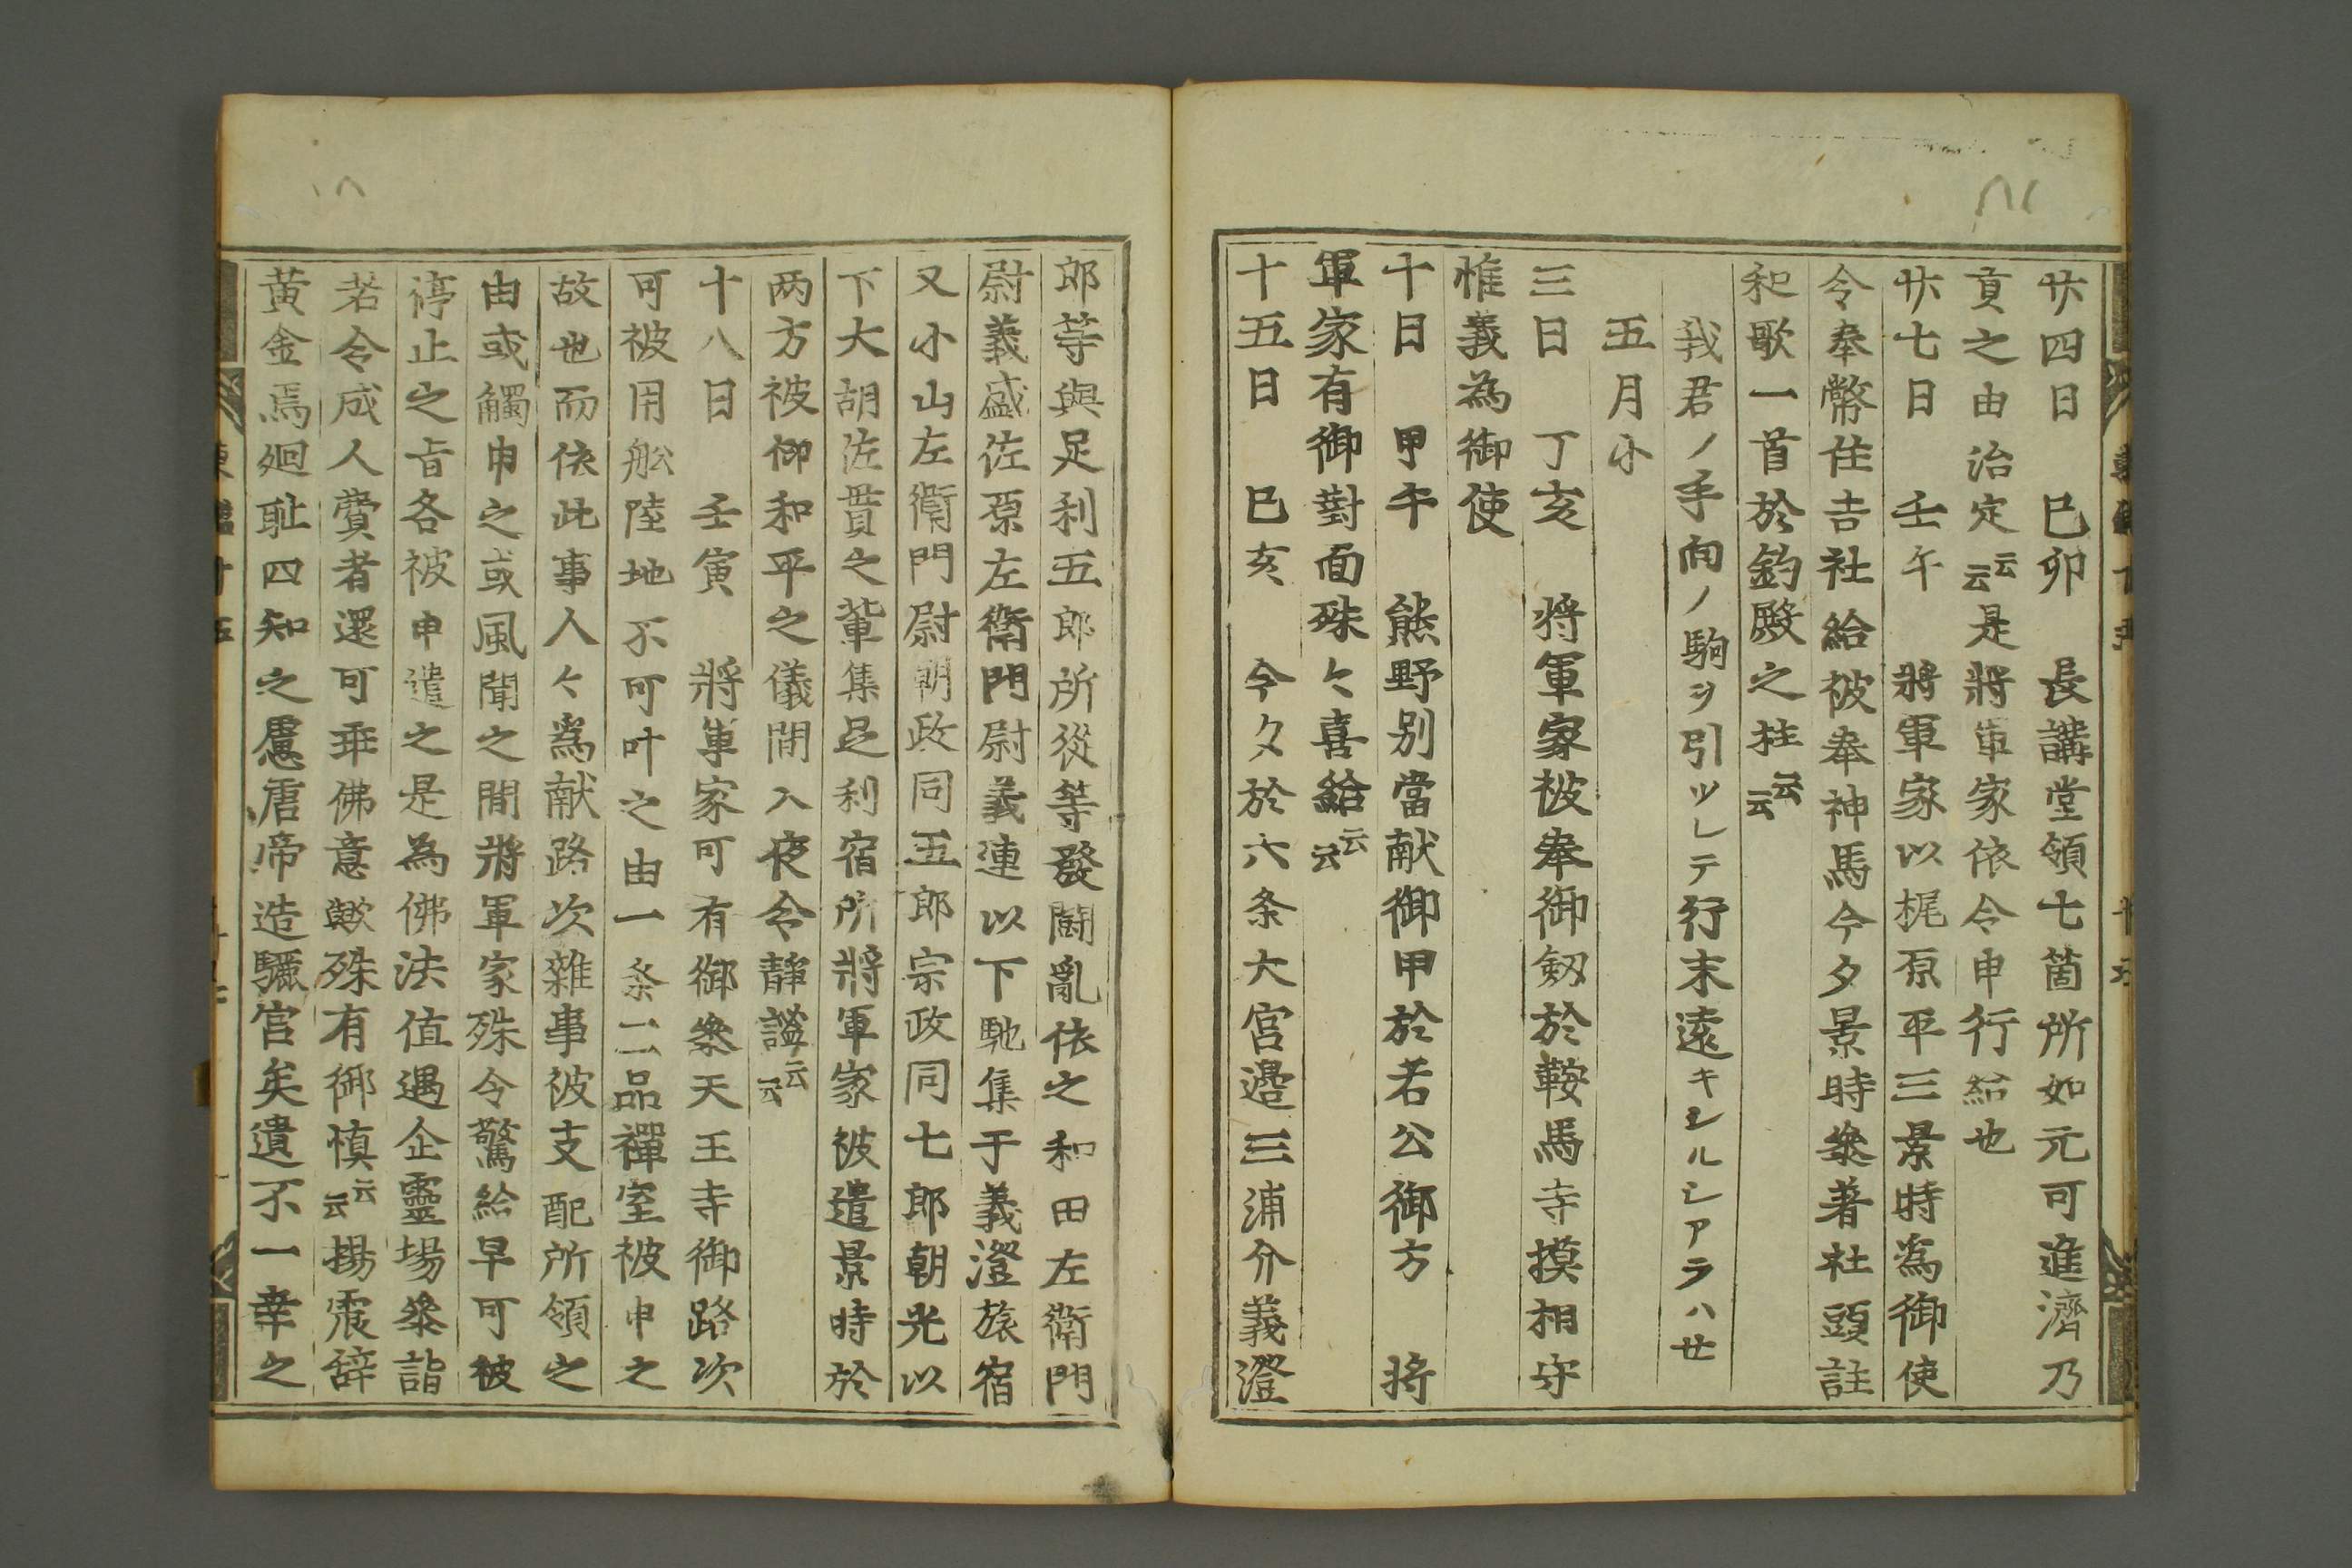 廿四日 巳卯 長講堂領七箇所如元可進濟乃
貢之由治定云云是將軍家依令申行給也
廿七日 壬午 將軍家以梶原平三景時為御使
令奉幣住吉社給被奉神馬今夕景時參著社頭註
和歌一首於釣殿之柱云云
我君ノ手向ノ駒ヲ引ツレテ行末遠キシルシアラハせ
五月小
三日 丁亥 將軍家被奉御劔於鞍馬寺摸相守
惟義為御使
十日 甲午 熊野别當献御甲於若公御方 将
軍家有御對面殊々喜給云云
十五日 巳亥 今夕於六条大宮邊三浦介義澄
郎等與足利五郎所從等發鬪亂依之和田左衛門
尉義盛佐原左衛門尉義連以下馳集于義澄旅宿
又小山左衛門尉朝政同五郎宗政同七郎朝光以
下大胡佐貫之輩集足利宿所將軍家被遣景時於
两方被仰和平之儀間入夜令靜謐云云
十八日 壬寅 將軍家可有御參天王寺御路次
可被用舩陸地不可叶之由一条二品禪室被申之
故也而依此事人々為献路次雜事被支配所領之
由或觸申之或風聞之間將軍家殊令驚給早可被
停止之旨各被申遣之是為佛法值遇企靈場參詣
若令成人費者還可乖佛意歟殊有御慎云云楊震辞
黄金焉廻耻四知之慮唐帝造驪宮矣遺不一幸之